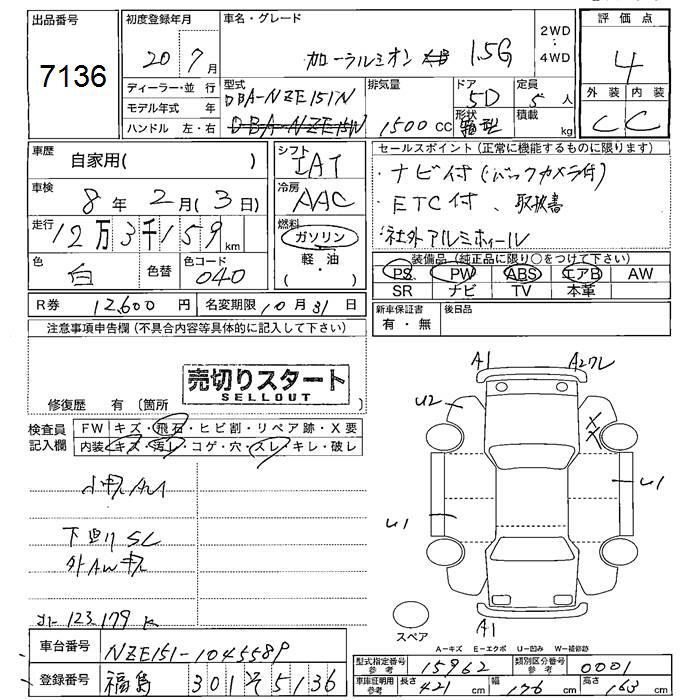 出品番号
7136
初度登録年月
20年7月
車名・グレード
カローラルミオン 1.5G
2WD
・
4WD
評価点
4
外装 内装
C C
ディーラー・並 行
モデル年式 年
ハンドル 左・右
型式
DBA-NZE151N
DBA-NZE151N
排気量
1500 CC
ドア
5D
形状
箱型
定員
5人
積載
kg
車歴
自家用( )
車検
8年2月(3日)
走行
12万3千159km
色
白
色替
色コード
040
シフト
IAT
冷房
AAC
燃料
ガソリン
・
軽・油
( )
セールスポイント(正常に機能するものに限ります)
・ナビ付(バックカメラ付)
・ETC付、取扱書
・社外アルミホィール
装備品(純正品に限り○をつけて下さい)
PS PW ABS エアB AW
SR ナビ TV 本革
R券 12,600円 名変期限 10月31日
新車保証書
有・無
後日品
注意事項申告欄(不具合内容等具体的に記入して下さい)
売切りスタート
SELLOUT
修復歴 有(箇所
検査員
記入欄
FW キズ・飛石・ヒビ割・リペア跡・X要
内装 キズ・汚レ・コゲ・穴・スレ・キレ・破レ
下廻りSC
123,179K
A1
U2
X
X
U1
U1
A1
スペア
A-キズ E-エクボ U-凹み W-補修跡
車台番号
NZE151-1045589
登録番号
福島 301 そ 5136
型式指定番号
参考
15962
類別区分番号
参考
0001
車庫証明用
参考
長さ 421 cm 幅 176 cm 高さ 163 cm